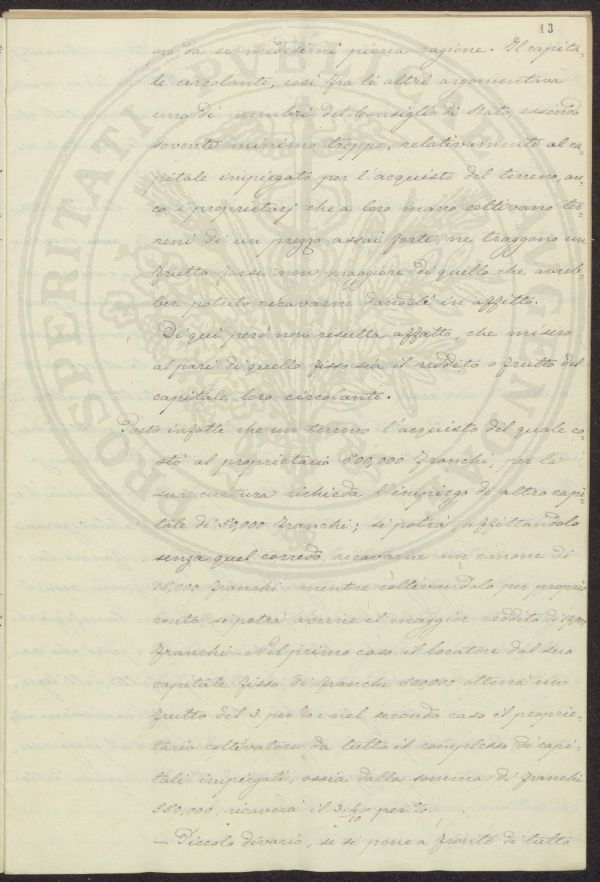 13
no da se medesimi piena ragione. Il capita-
le circolante, così fra li altri argomentava
uno di membri del Consiglio di Stato, essendo
sovente minimo troppo, relativamente al ca-
pitale impiegato per l'acquisto del terreno, an-
co i proprietarj che a loro mano coltivano ter-
reni di un prezzo assai forte, ne traggono un
frutto forse non maggiore di quello che avreb-
ber potuto ricavarne dandoli in affitto.
Di qui però non resulta affatto, che misero
al pari di quello fisso sia il reddito o frutto del
capitale loro circolante.
Posto infatti che un terreno l'acquisto del quale co-
stò al proprietario 500,000 franchi, per la
sua cultura richieda l'impiego di altro capi-
tale di 50,000 franchi; si potrà, affittandolo
senza quel corredo, ricavarne un canone di
15,000 franchi mentre coltivandolo per proprio
conto, si potrà averne il maggior reddito di
franchi – Nel primo caso il locatore dal suo
capitale fisso di franchi 500,000 otterrà un
frutto del 3. per %: nel secondo caso il proprie-
tario coltivatore da tutto il complesso di capi-
tali impiegati, ossia dalla somma di franchi
550,000, ricaverà il 3. 4/10 per %.
– Piccolo divario, se si pone a fronte di tutto
PROSPERITATI PUBLICAE AUG